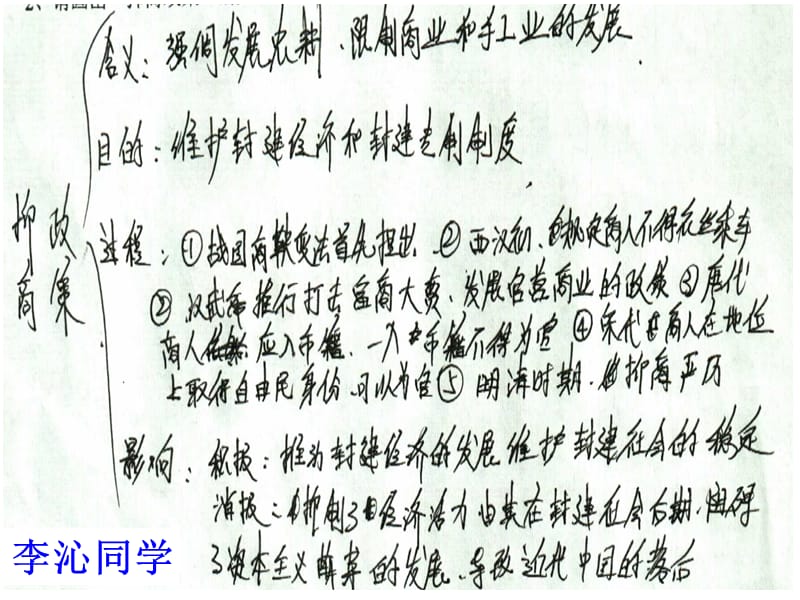 含义：强调发展农耕、限制商业和手工业的发展.
目的：维护封建经济和封建专制制度
抑商
政策
过程：①战国商鞅变法首先提出 ②西汉初、规定商人不得衣丝乘车
②汉武帝推行打击富商大贾、发展官营商业的政策③唐代
商人应入市籍、一入市籍不得为官④宋代商人在地位
上取得自由民身份、可以为官⑤明清时期、抑商严厉
影响：积极：推动封建经济的发展维护封建社会的稳定
消极：抑制了经济活力尤其在封建社会后期、阻碍
了资本主义萌芽的发展、导致近代中国的落后
李沁同学